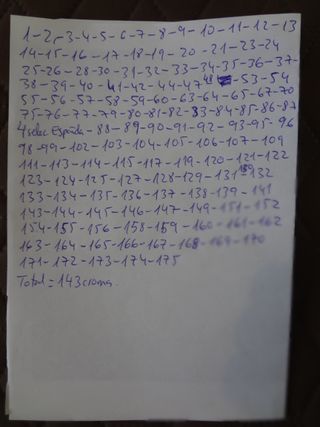 1-2-3-4-5-6-7-8-9-10-11-12-13
14-15-16-17-18-19-20-21-23-24
25-26-28-30-31-32-33-34-35-36-37-
38-39-40-41-42-44-47 48 -53-54
55-56-57-58-59-60-63-64-65-67-70
75-76-77-79-80-81-82-83-84-85-86-87
4 selec España-88-89-90-91-92-93-95-96
98-99-102-103-104-105-106-107-109
111-113-114-115-117-119-120-121-122
123-124-125-127-128-129-131 132
133-134-135-136-137-138-139-141
143-144-145-146-147-149-151-152
154-155-156-158-159-160-161-162
163-164-165-166-167-168-169-170
171-172-173-174-175
Total=143 croma.